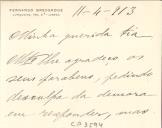 FERNANDO BREDERODE
11-4-913
Minha querida tia
Muito lhe agradeço os
seus parabens, pedindo
desculpa da demora
em responder, mas
CP3594